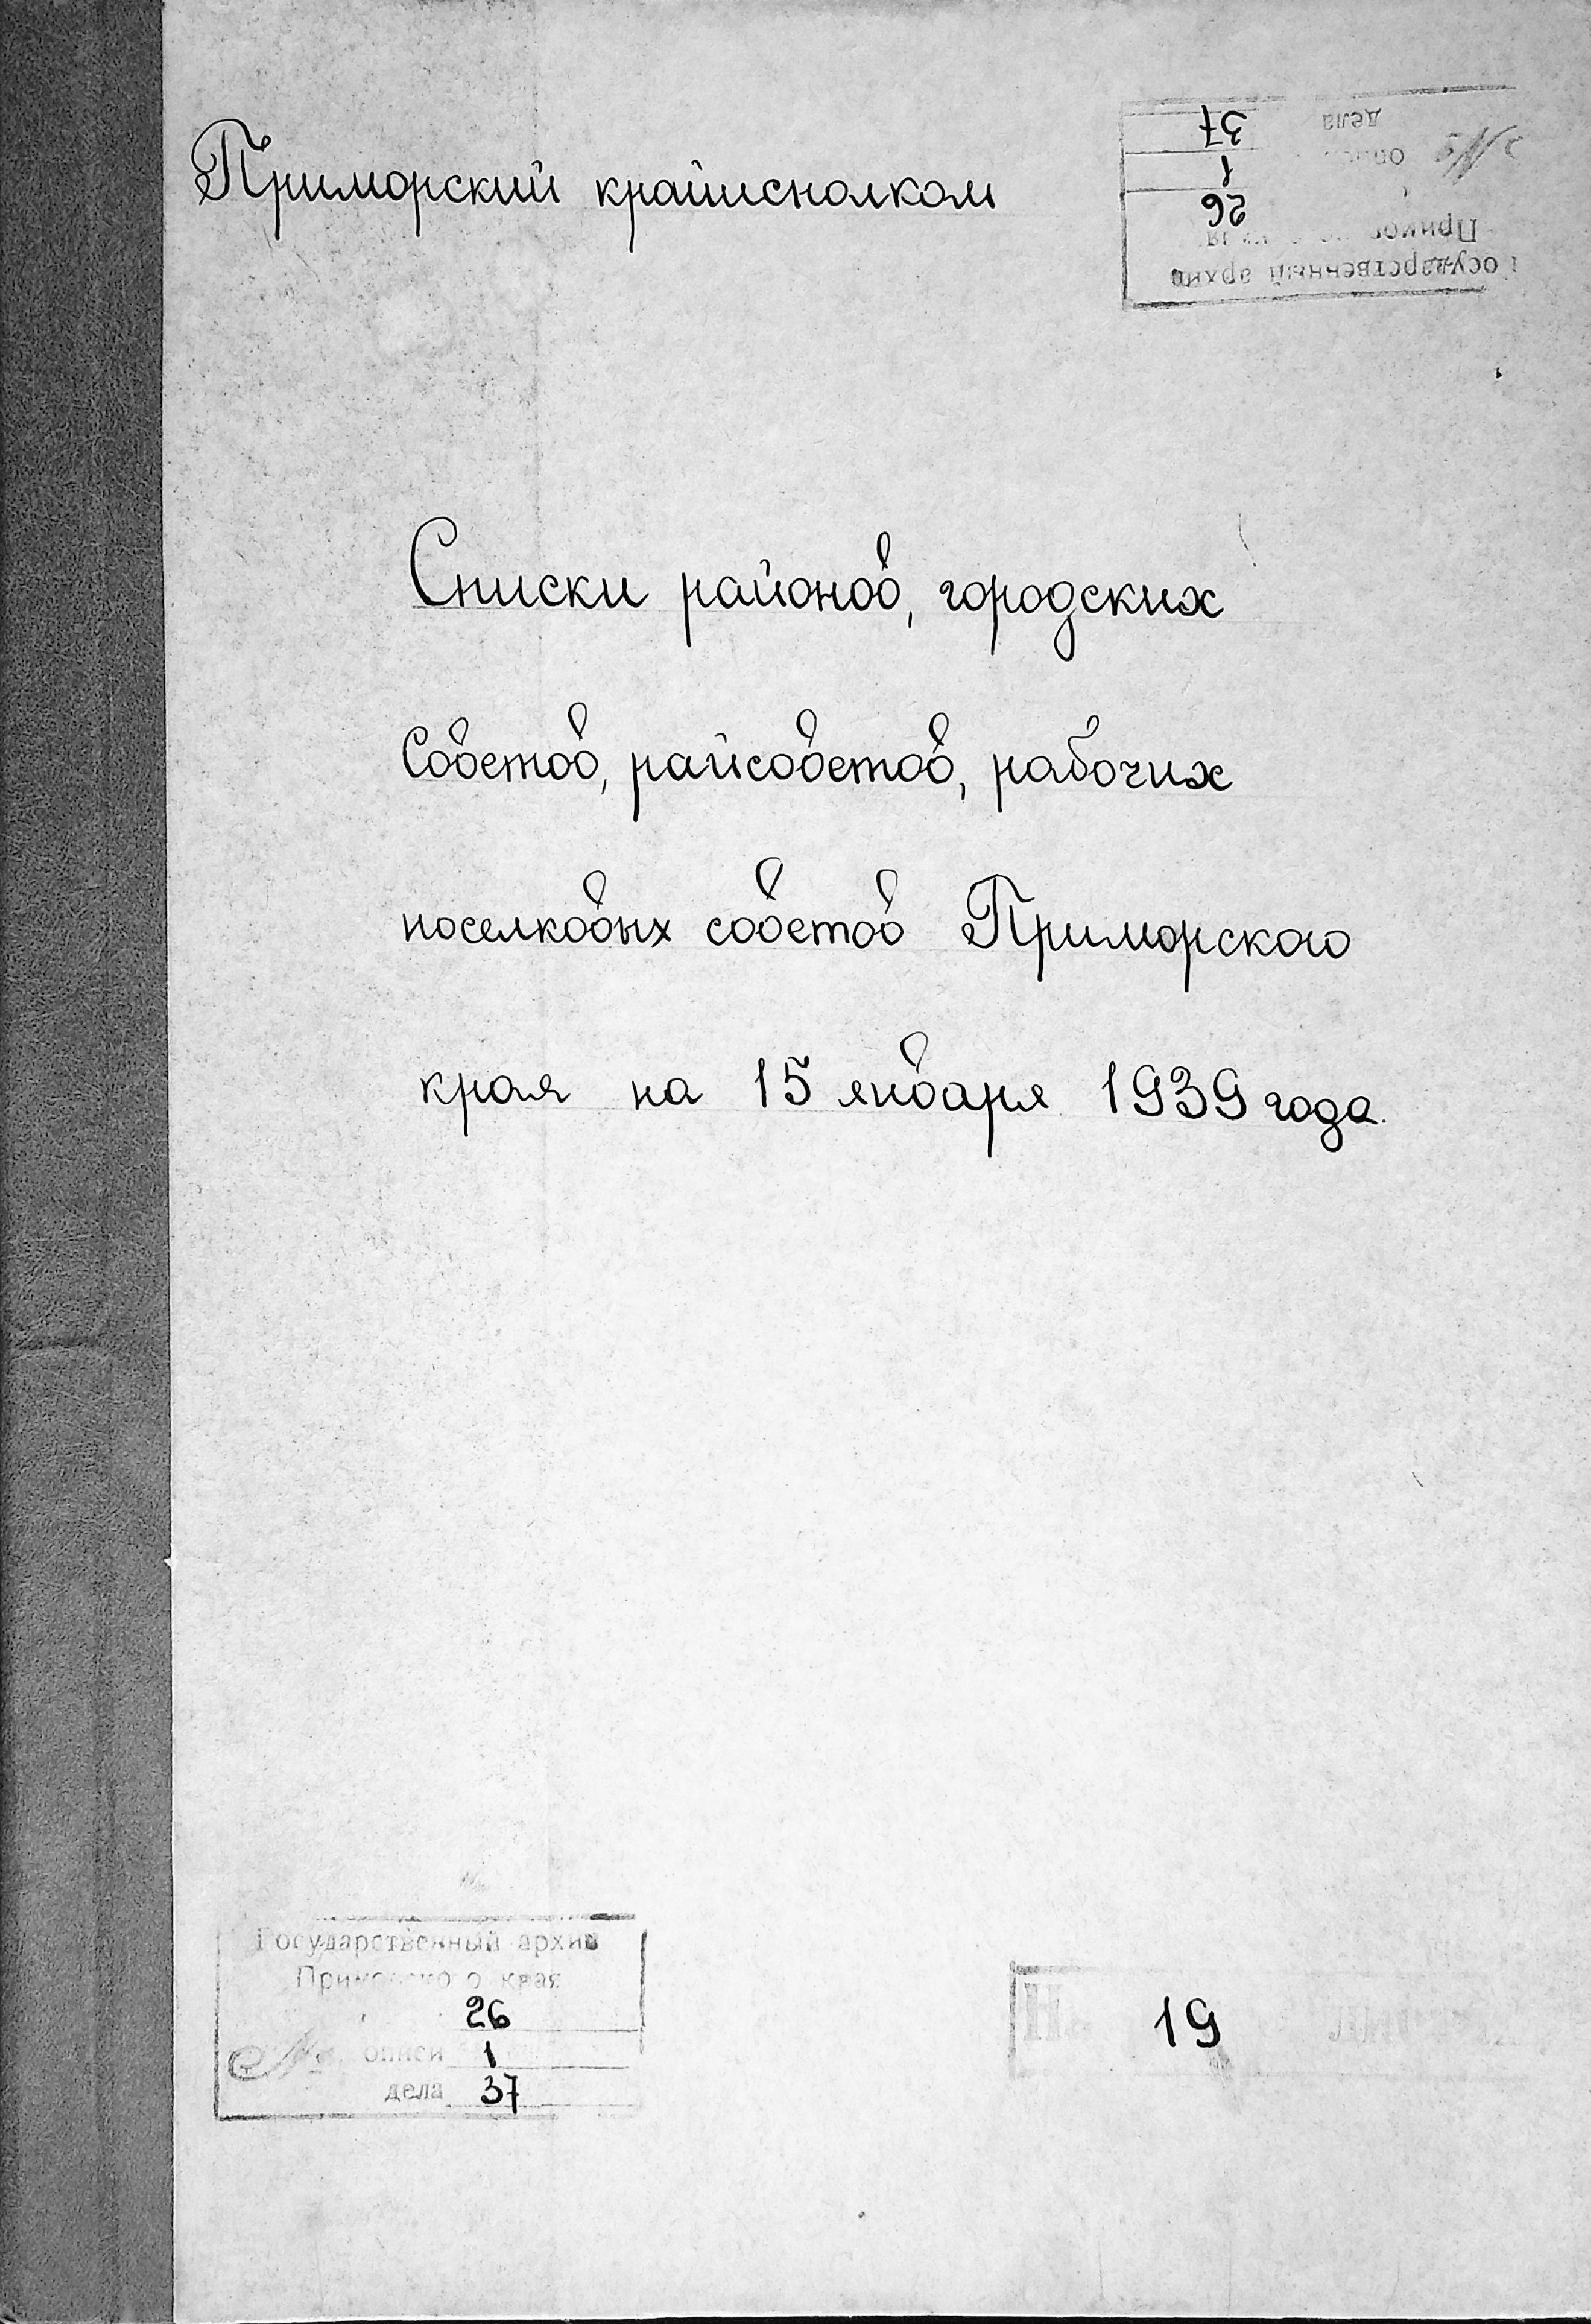 Приморский крайисполком
дела 37
№ 1
26
государственный архив
Списки районов, городских
Советов, райсоветов, рабочих
поселковых советов Приморского
края на 15 января 1939 года.
Государственный архив
Приморского края
26
№ описи 1
дела 37
19